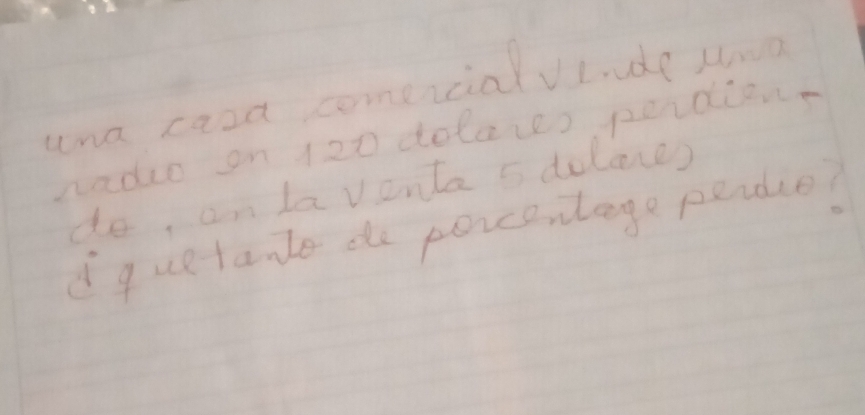 una casa comercial vende una
radio en 120 dolares perdien-
do, en la venta 5 dolares
¿que tanto de porcentage perdio?